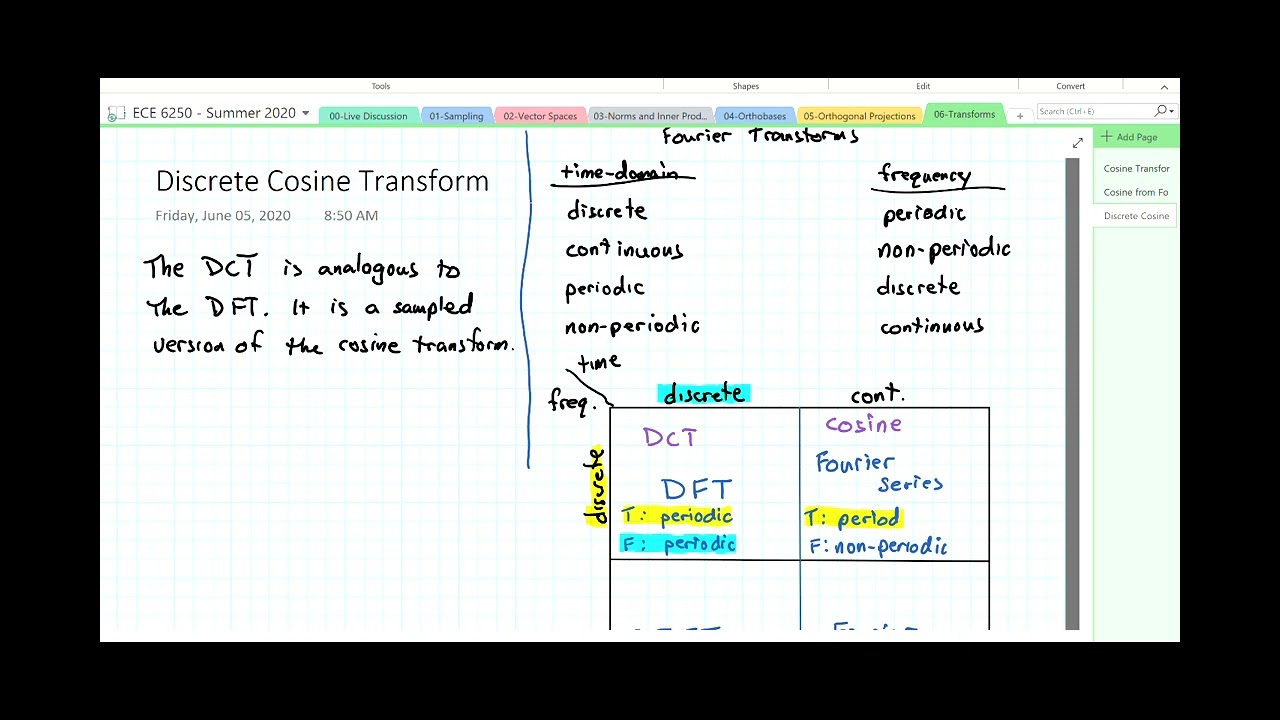 Tools Shapes Edit Convert
ECE 6250 - Summer 2020 00-Live Discussion 01-Sampling 02-Vector Spaces 03-Norms and Inner Prod... 04-Orthobases 05-Orthogonal Projections 06-Transforms Search (Ctrl+E)
Add Page
Cosine Transfor
Cosine from Fo
Discrete Cosine
Discrete Cosine Transform
Friday, June 05, 2020 8:50 AM
The DCT is analogous to
the DFT. It is a sampled
version of the cosine transform.
Fourier Transforms
time-domain frequency
discrete periodic
continuous non-periodic
periodic discrete
non-periodic continuous
time
freq. discrete cont.
discrete
DCT
DFT
T: periodic
F: periodic
Cosine
Fourier
Series
T: period
F: non-periodic